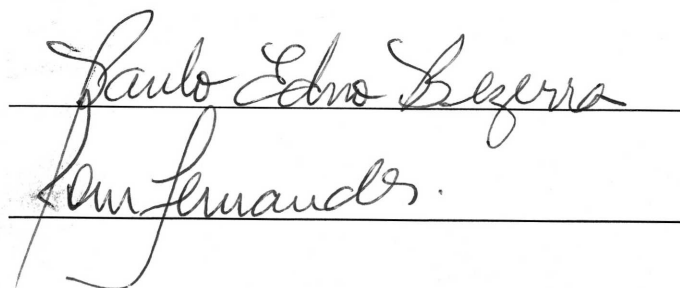 Paulo Edno Bezerra
Fernandes.